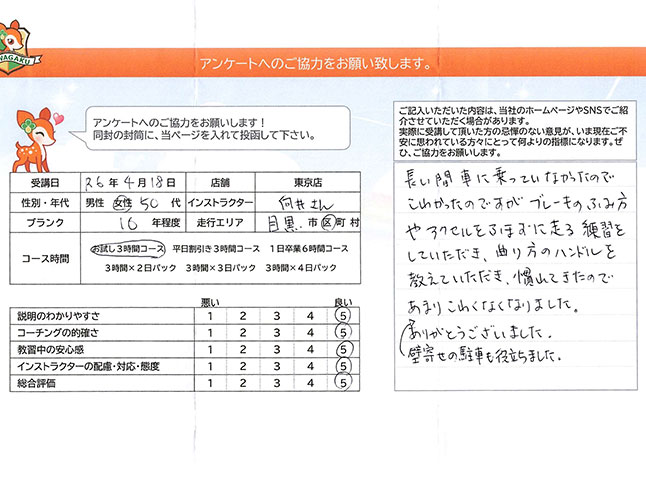 NAGAKU
アンケートへのご協力をお願い致します。
アンケートへのご協力をお願いします！
同封の封筒に、当ページを入れて投函して下さい。
受講日 26年4月18日 店舗 東京店
性別・年代 男性 女性 50代 インストラクター 向井さん
ブランク 10年程度 走行エリア 目黒 市区町村
コース時間 お試し3時間コース 平日割引き3時間コース 1日卒業6時間コース
3時間×2日パック 3時間×3日パック 3時間×4日パック
悪い 良い
説明のわかりやすさ 1 2 3 4 5
コーチングの的確さ 1 2 3 4 5
教習中の安心感 1 2 3 4 5
インストラクターの配慮・対応・態度 1 2 3 4 5
総合評価 1 2 3 4 5
ご記入いただいた内容は、当社のホームページやSNSでご紹
介させていただく場合があります。
実際に受講して頂いた方の忌憚のない意見が、いま現在ご不
安に思われている方々にとって何よりの指標になります。ぜ
ひ、ご協力をお願いします。
長い間車に乗っていなかったので
こわかったのですがブレーキのふみ方
やアクセルをふまずに走る練習を
していただき、曲り方のハンドルを
教えていただき、慣れてきたので
あまりこわくなくなりました。
ありがとうございました。
壁寄せの駐車も役立ちました。